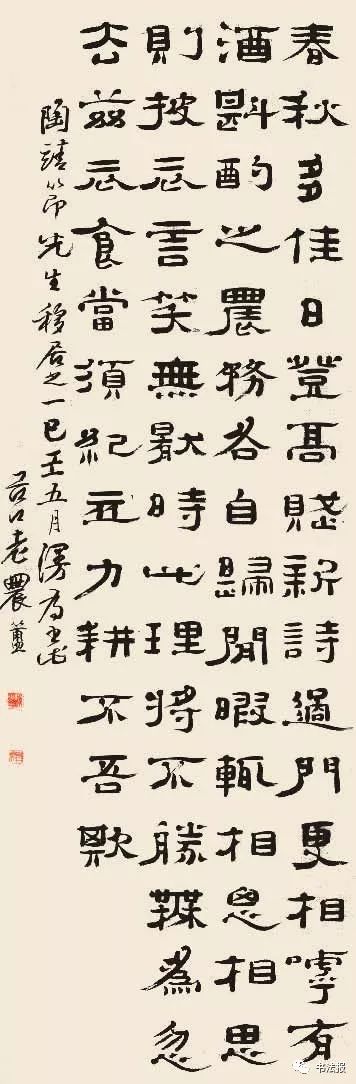 春秋多佳日登高賦新詩過門更相嘑有
酒斟酌之農務各自歸閒暇輒相思相思
則披衣言笑無猒時此理將不勝為忽
去茲衣食當須紀力耕不吾欺
陶靖節先生移居之一 五月漫為
老農
书法报